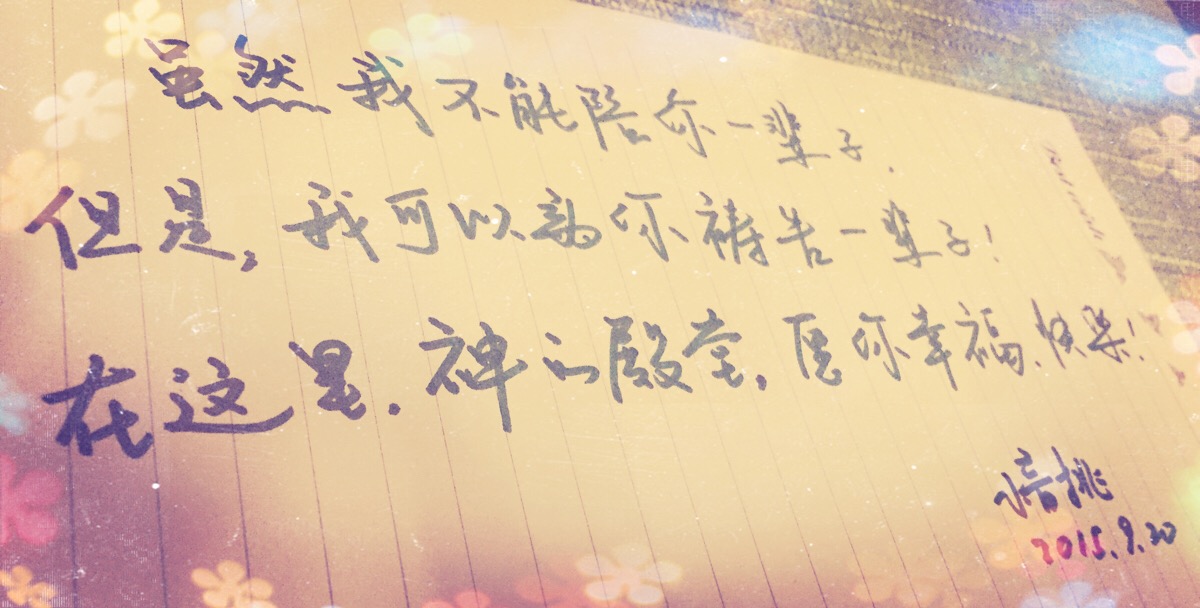 虽然我不能陪你一辈子.
但是,我可以为你祷告一辈子!
在这里.神的殿堂,愿你幸福、快乐!
2015.9.20